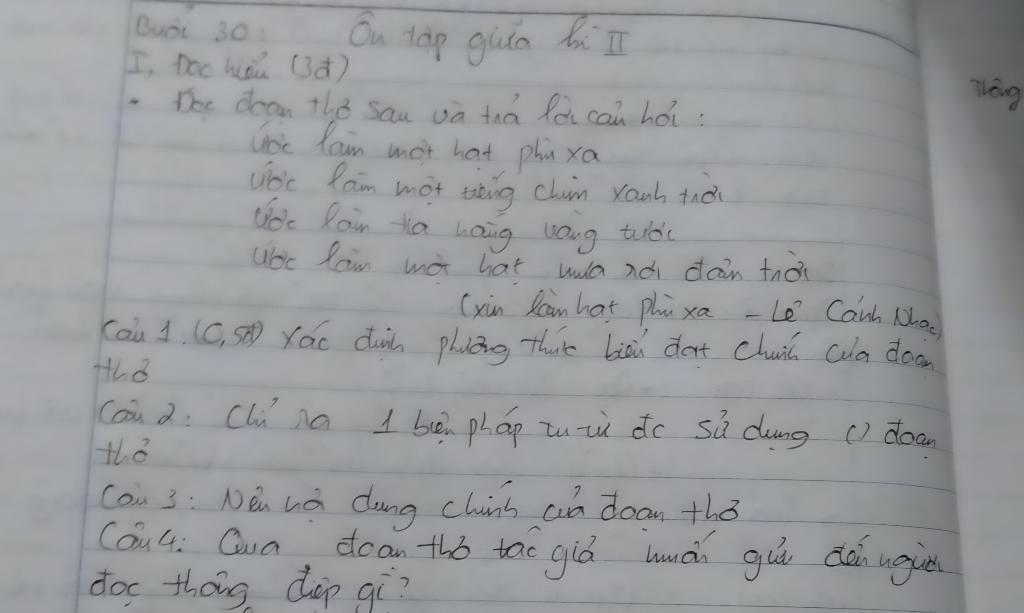 Buổi 30: Ôn tập giữa kì II
I, Đọc hiểu (3đ)
Thông
• Đọc đoạn thơ sau và trả lời câu hỏi:
Ước làm một hạt phù xa
Ước làm một tiếng chim xanh trời
Ước làm tia nắng vàng tươi
Ước làm một hạt mưa rơi đâm trời
(xin làm hạt phù xa - Lê Cảnh Nhạc)
Câu 1. (0,5đ) Xác định phương thức biểu đạt chính của đoạn
thơ
Câu 2: Chỉ ra 1 biện pháp tu từ đc sử dụng () đoạn
thơ
Câu 3: Nêu nội dung chính của đoạn thơ
Câu 4: Qua đoạn thơ tác giả muốn gửi đến người
đọc thông điệp gì?